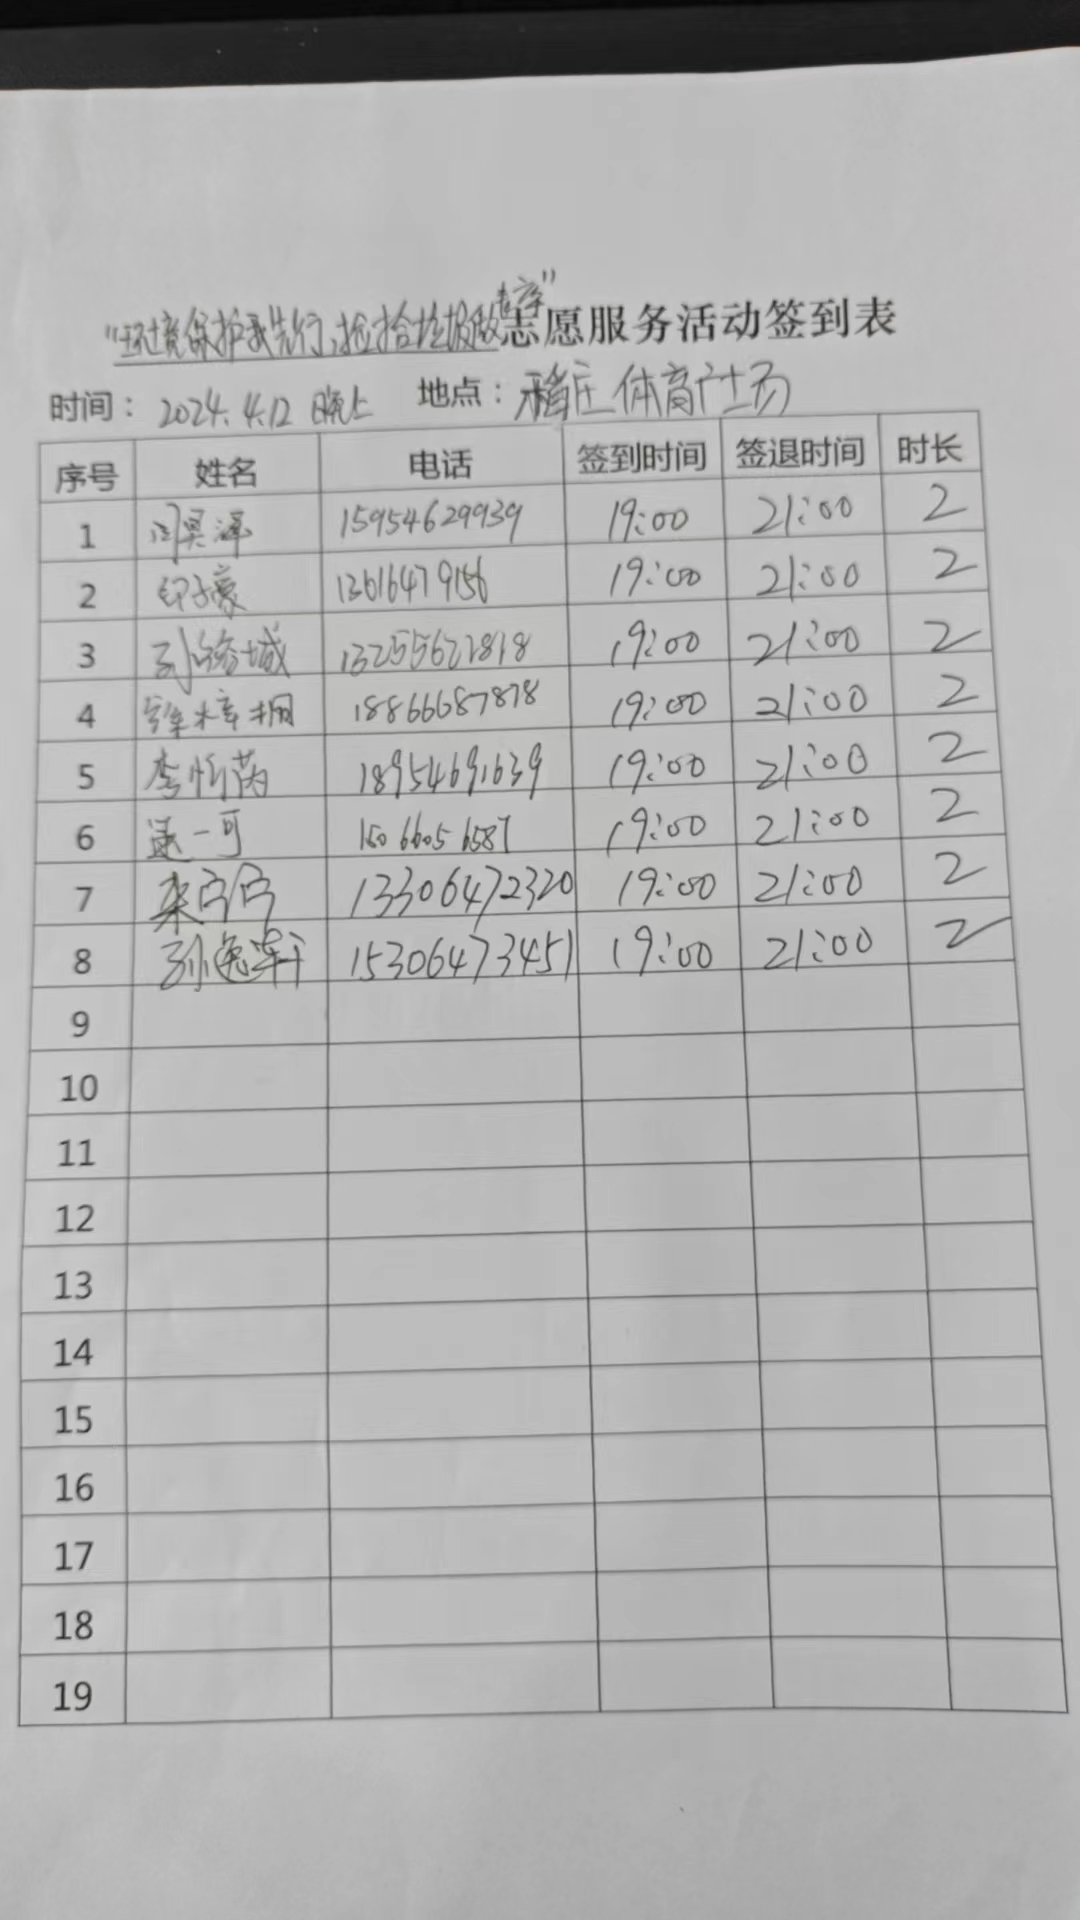 "环境保护我先行,捡拾垃圾做表率"志愿服务活动签到表
时间：2024.4.12 晚上 地点：稻庄体育广场
序号 姓名 电话 签到时间 签退时间 时长
1 闫昊泽 15954629939 19:00 21:00 2
2 子豪 13616479156 19:00 21:00 2
3 孙 城 13255621818 19:00 21:00 2
4 18866687878 19:00 21:00 2
5 李 15954691639 19:00 21:00 2
6 一可 150 6605 6587 19:00 21:00 2
7 13306472320 19:00 21:00 2
8 孙逸轩 15306473451 19:00 21:00 2
9
10
11
12
13
14
15
16
17
18
19